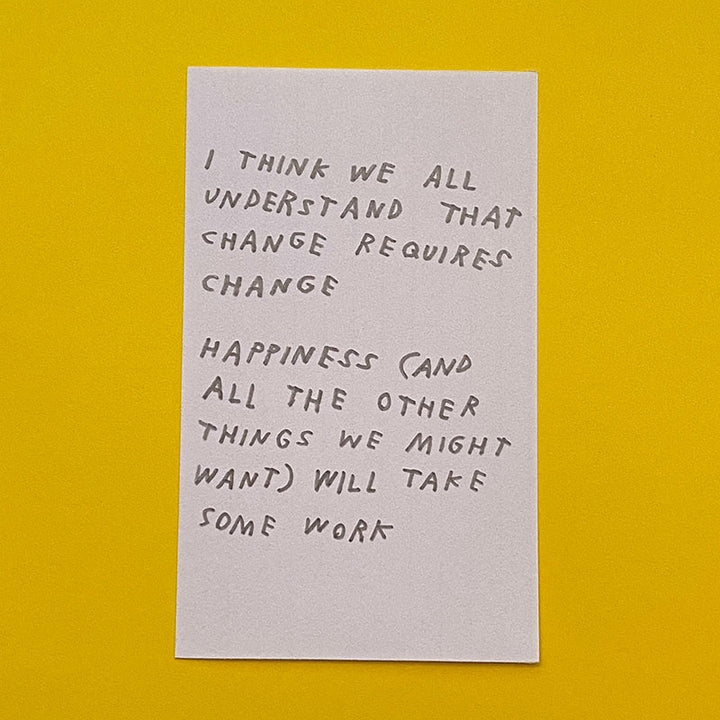 I THINK WE ALL
UNDERSTAND THAT
CHANGE REQUIRES
CHANGE
HAPPINESS (AND
ALL THE OTHER
THINGS WE MIGHT
WANT) WILL TAKE
SOME WORK